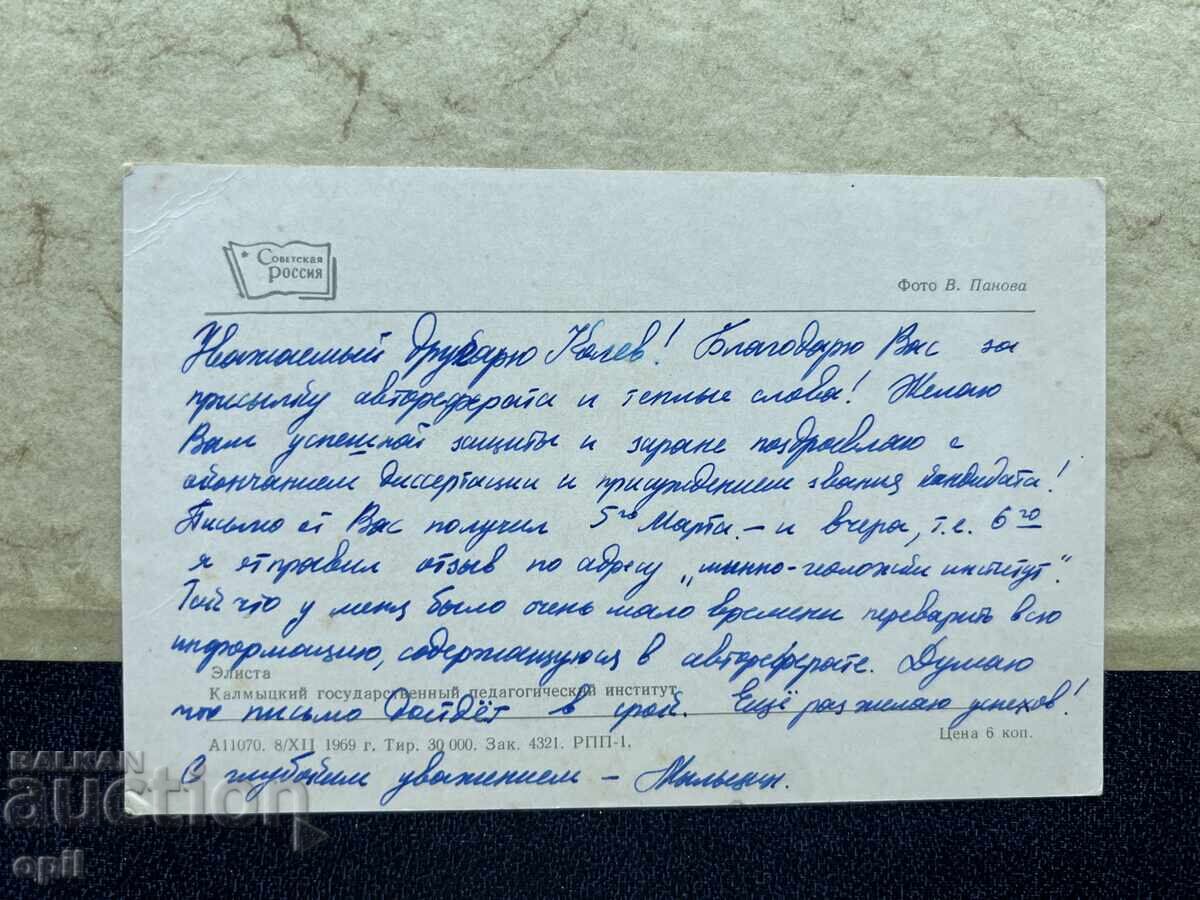 Советская
Россия
Фото В. Панова
Уважаемый Колев! Благодарю Вас за
присылку автореферата и теплые слова! Желаю
Вам успешной защиты и заране поздравляю с
окончанием диссертации и присуждением звания кандидата!
Письмо от Вас получил 5го Марта – и вчера, т.е. 6го
я отправил отзыв по адресу „минно-геоложки институт".
Так что у меня было очень мало времени переварить всю
информацию, содержащуюся в автореферате. Думаю
Элиста
Калмыцкий государственный педагогический институт
что письмо дойдёт в срок. Ещё раз желаю успехов!
А11070. 8/XII 1969 г. Тир. 30 000. Зак. 4321. РПП-1.
Цена 6 коп.
С глубоким уважением –
BALKAN
auction
opil